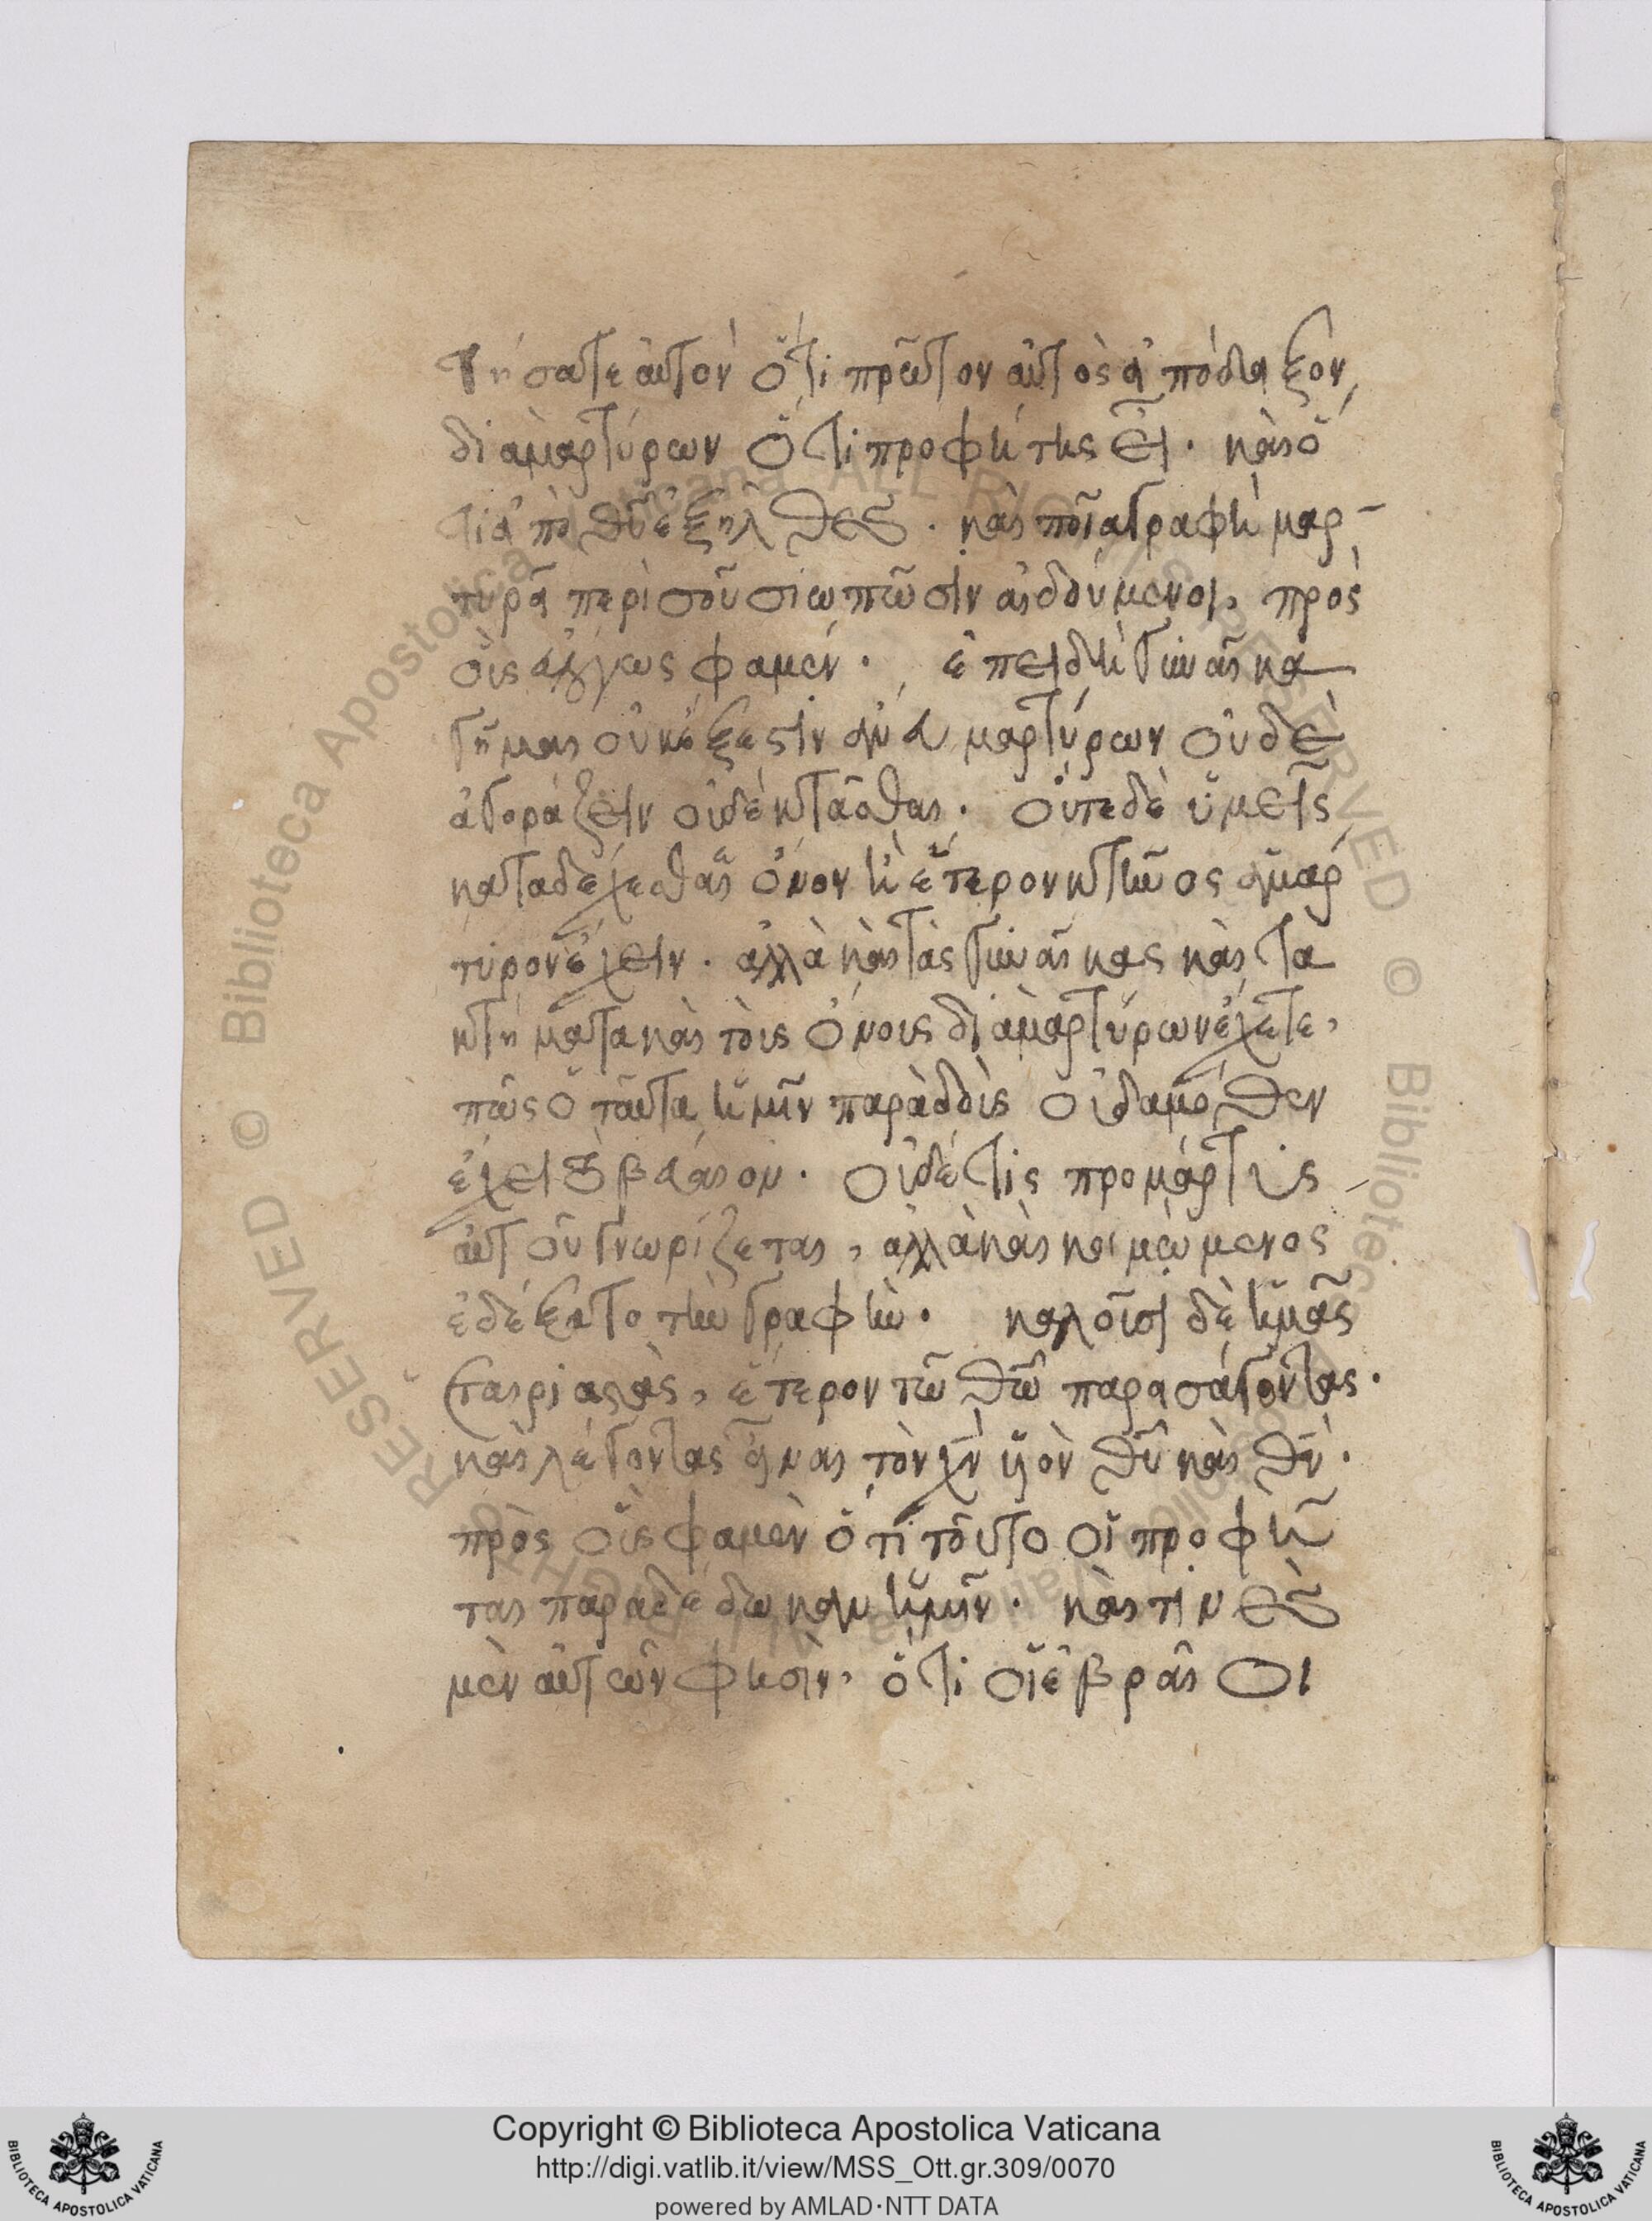 τήσατε αὐτὸν ὅτι πρῶτον αὐτὸς ἀπόδειξον
διαμαρτύρων ὅτι προφήτης εἶ. καὶ ὅ
τι ἀπὸ θυ ἐξῆλθες. καὶ ποῖα γραφὴ μαρ-
τυρᾶ περὶ σοῦ σιωπῶσιν αἰδούμενοι, πρὸς
οὓς εὐλόγως φαμέν. ἐπειδὴ γυναῖκα
γῆμαι οὐκ ἔξεστιν ἄνευ μαρτύρων οὐδὲ
ἀγοράζειν οὐδὲ κτᾶσθαι. οὔτε δὲ ὑμεῖς
καταδέχεσθαι ὄνον ἢ ἕτερον κτῆνος ἀμάρ
τυρον ἔχειν. ἀλλὰ καὶ τὰς γυναῖκας καὶ τὰ
κτήματα καὶ τοὺς ὄνους διαμαρτύρων ἔχετε,
πῶς ὁ ταῦτα ἡμῖν παραδοὺς οὐδαμόθεν
ἔχει τὸ βέβαιον. οὐδέ τις προμάρτυς
αὐτοῦ γνωρίζεται, ἀλλὰ καὶ κοιμώμενος
ἐδέξατο τὴν γραφὴν. καλοῦσι δὲ ἡμᾶς
ἑταιριαστὰς, ἕτερον τῶ θῶ παρεισάγοντας.
καὶ λέγοντας εἶναι τὸν χν υἱὸν θυ καὶ θν.
πρὸς οὓς φαμὲν ὅτι τοῦτο οἱ προφῆ
ται παραδέδωκαν ἡμῖν. καὶ τινὲς
μὲν αὐτῶν φησὶν, ὅτι οἱ ἑβραῖοι
Copyright © Biblioteca Apostolica Vaticana
http://digi.vatlib.it/view/MSS_Ott.gr.309/0070
powered by AMLAD·NTT DATA